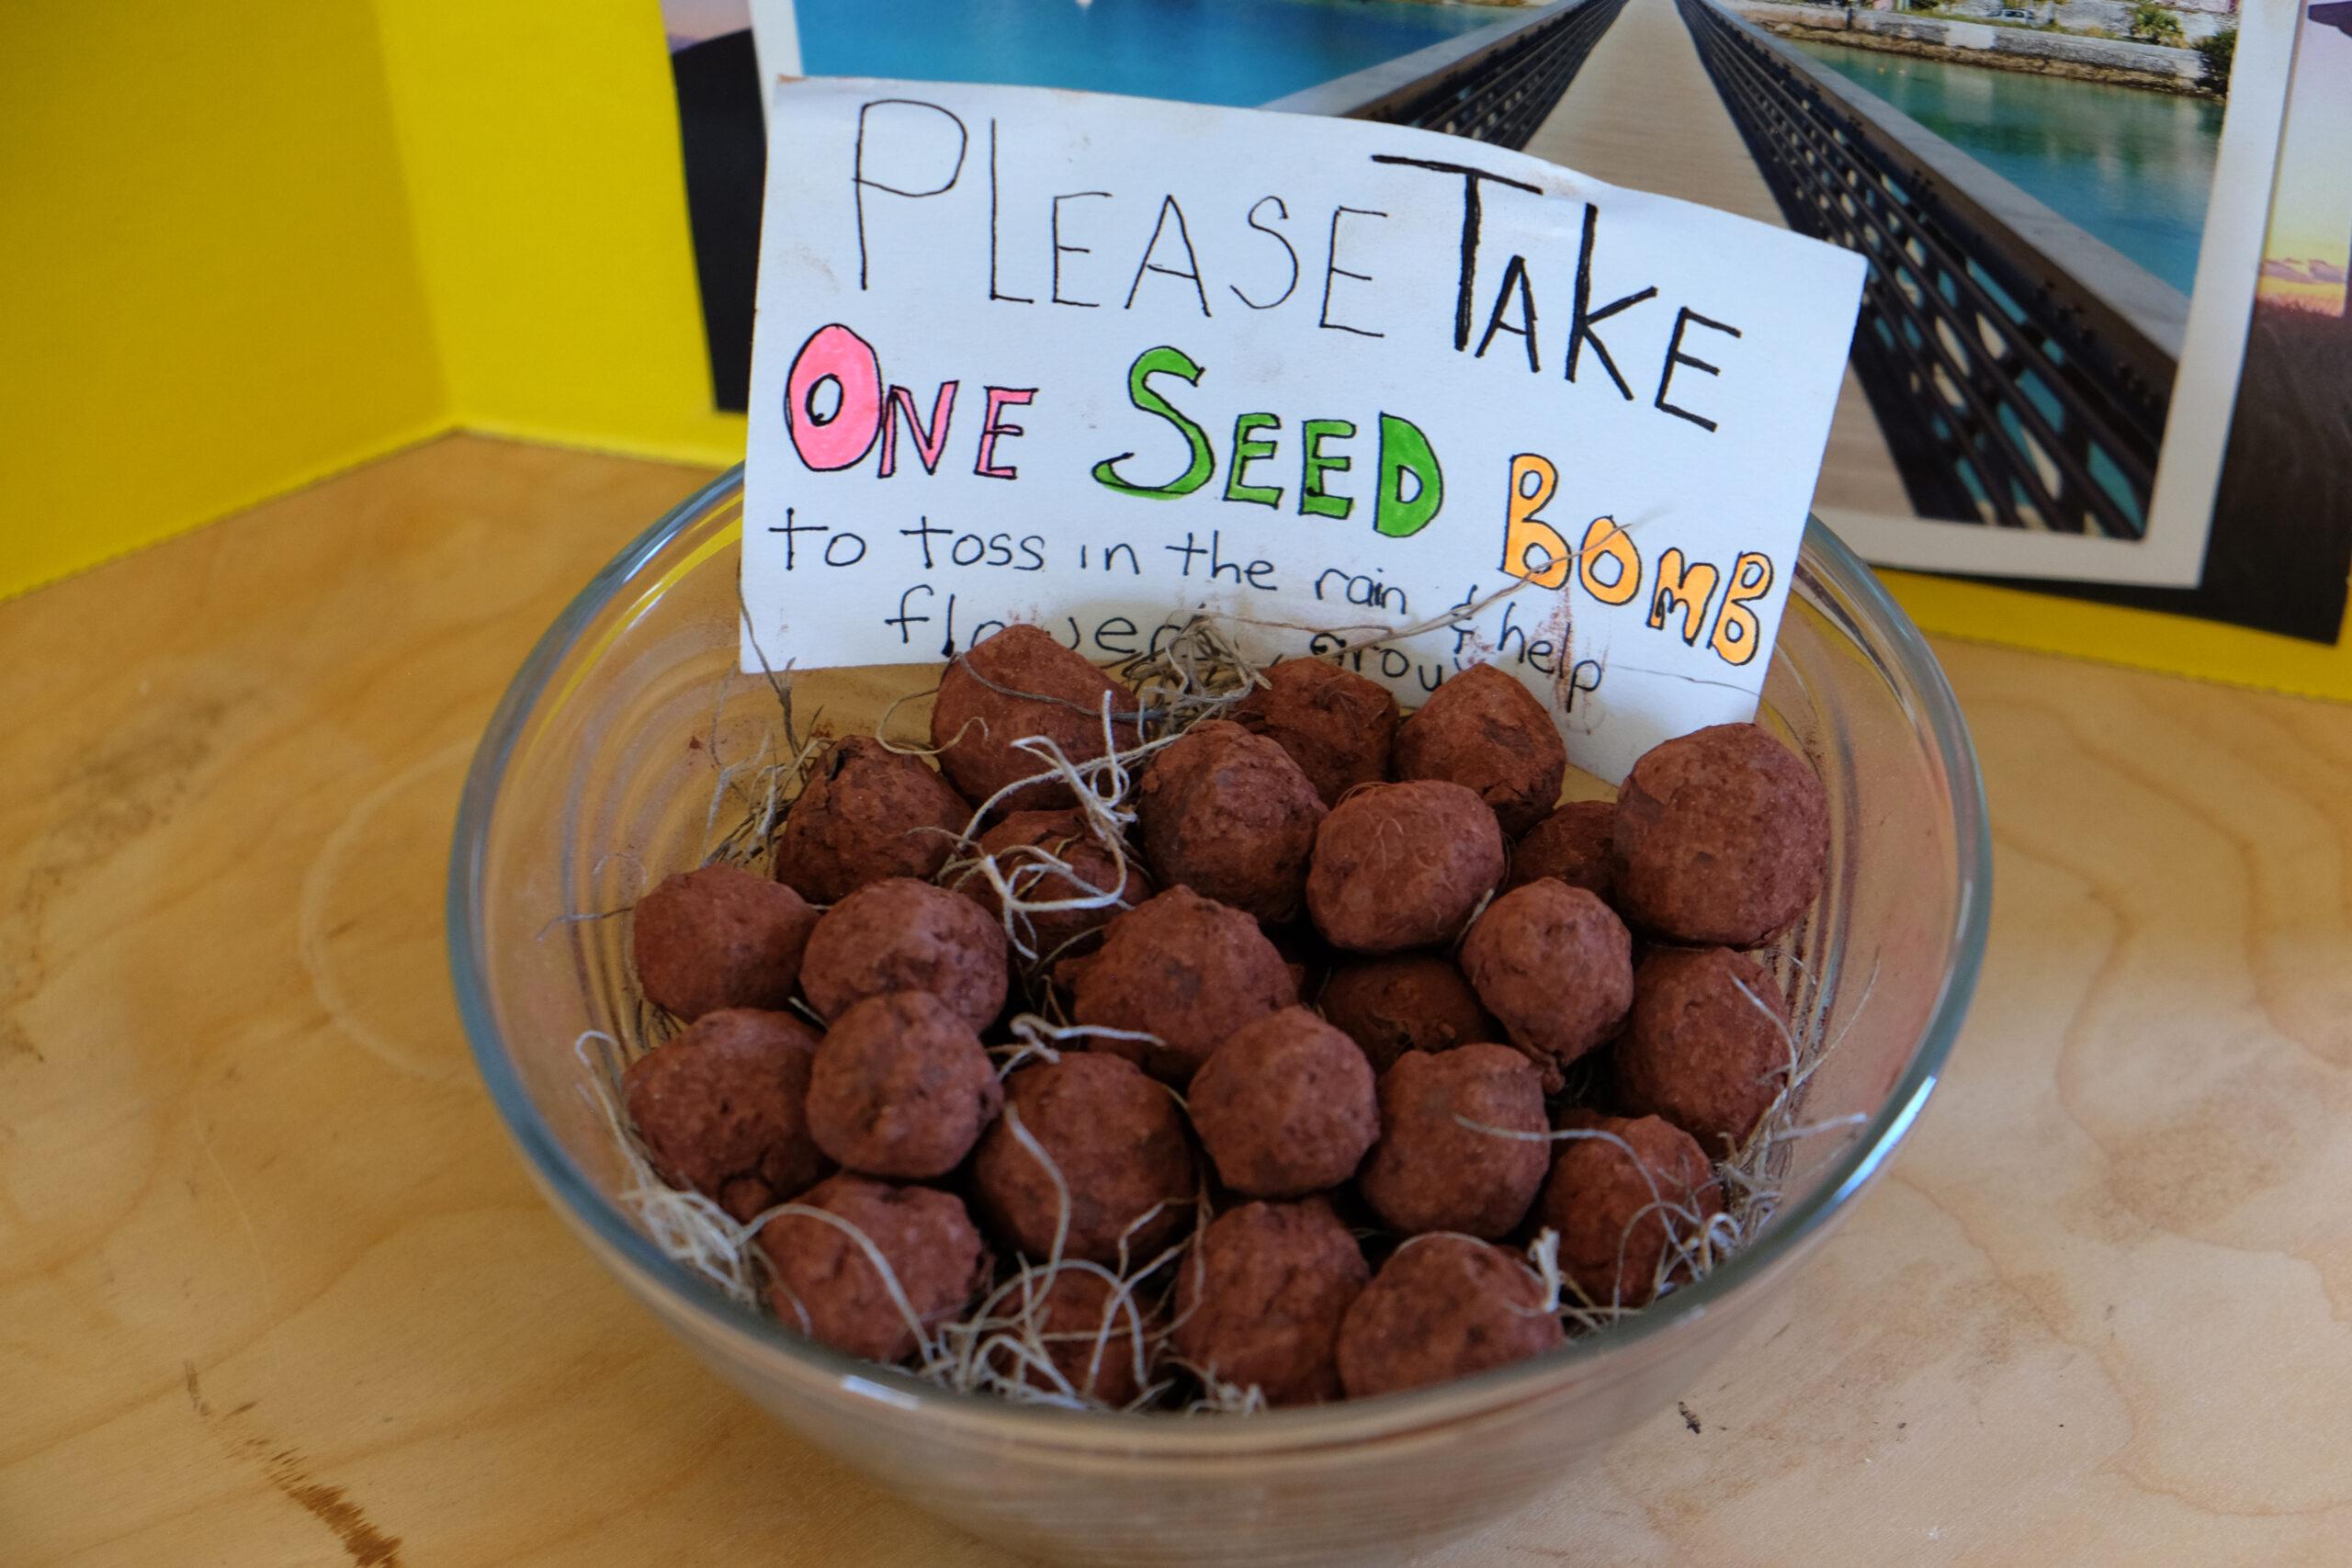 PLEASE TAKE
ONE SEED BOMB
to toss in the rain & help
flowers grow